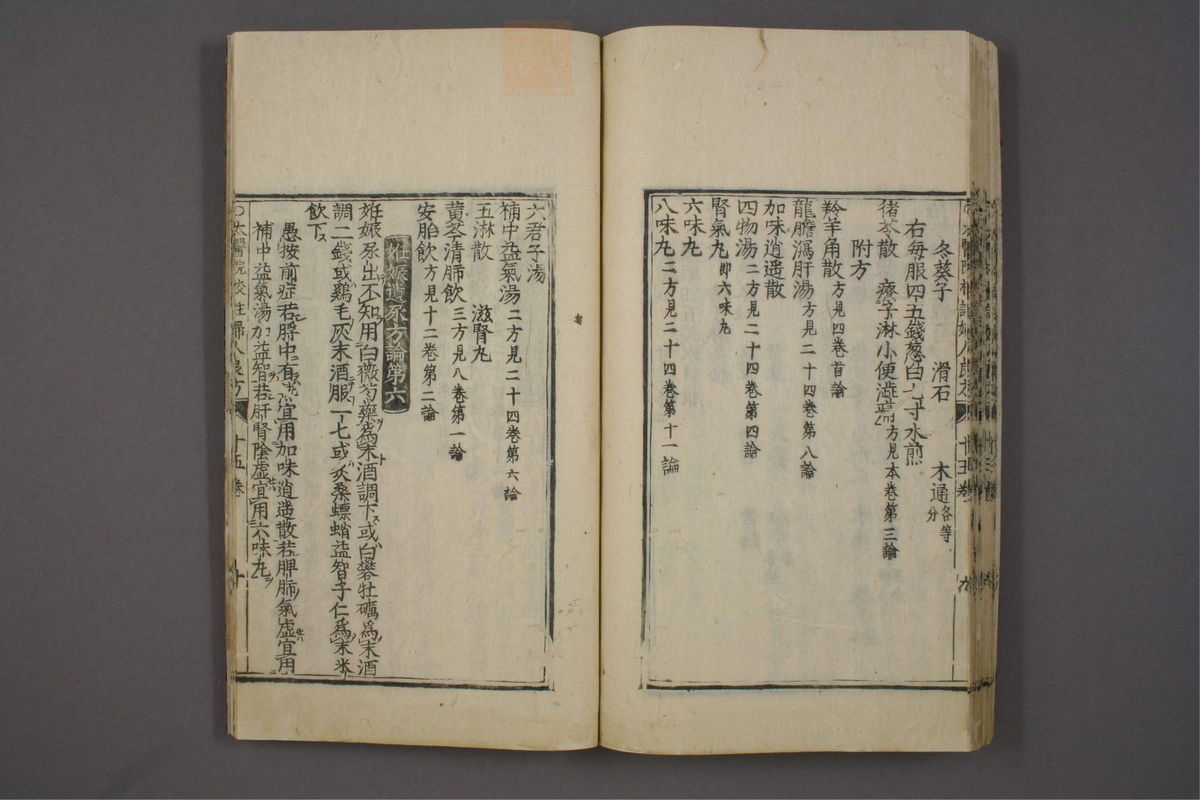 冬葵子 滑石 木通各等分
右每服四五錢葱白一寸水煎
猪苓散 療子淋小便澁痛方見本卷第三論
附方
羚羊角散方見四卷首論
龍膽瀉肝湯方見二十四卷第八論
加味逍遥散
四物湯二方見二十四卷第四論
腎氣丸即六味丸
六味丸
八味丸二方見二十四卷第十一論
十五卷 九
六君子湯
補中益氣湯二方見二十四卷第六論
五淋散 滋腎丸
黄芩清肺飲三方見八卷第一論
安胎飲方見十二卷第二論
妊娠遺尿方論第六
妊娠尿出不知用白薇芍藥爲末酒調下或白礬牡礪爲末酒
調二錢或鷄毛灰末酒服一七或炙桑螵蛸益智子仁爲末米
飲下
愚按前症若脬中有熱宜用加味逍遥散若脾肺氣虚宜用
補中益氣湯加益智若肝腎陰虚宜用六味丸
太醫院校註婦人良方 十五卷 十